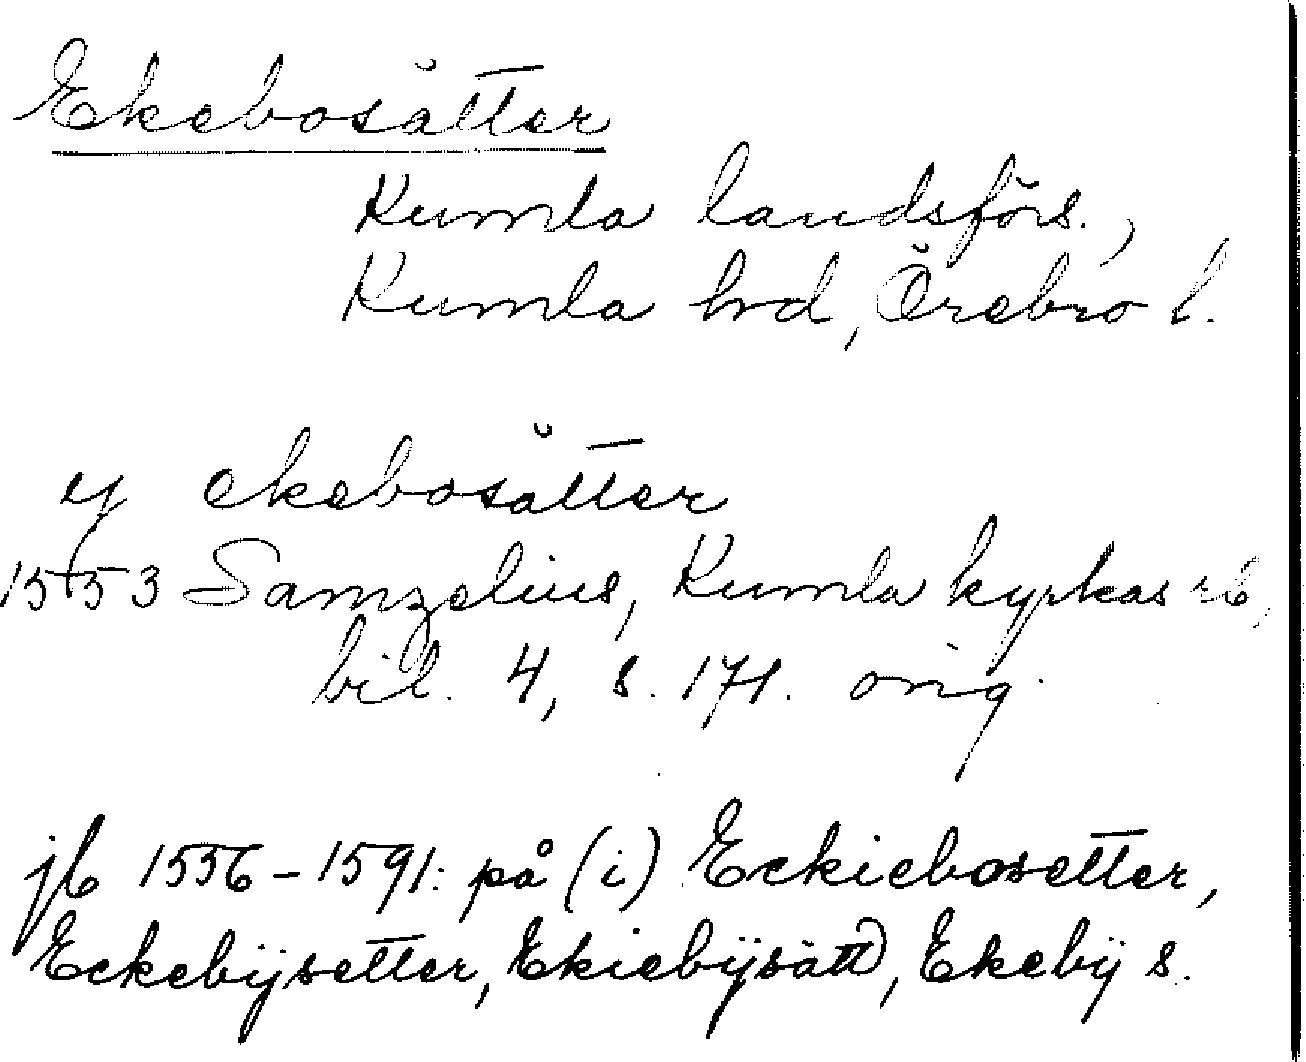 Ekebosätter
Kumla landsförs.,
Kumla hrd, Örebro l.
ij ekebosätter
1553 Samzelius, Kumla kyrkas rb,
bil. 4, s. 171. orig.
jb 1556-1591: på (i) Eckiebosetter,
Eckebÿsetter, Ekiebÿsätt, Ekebÿ s.